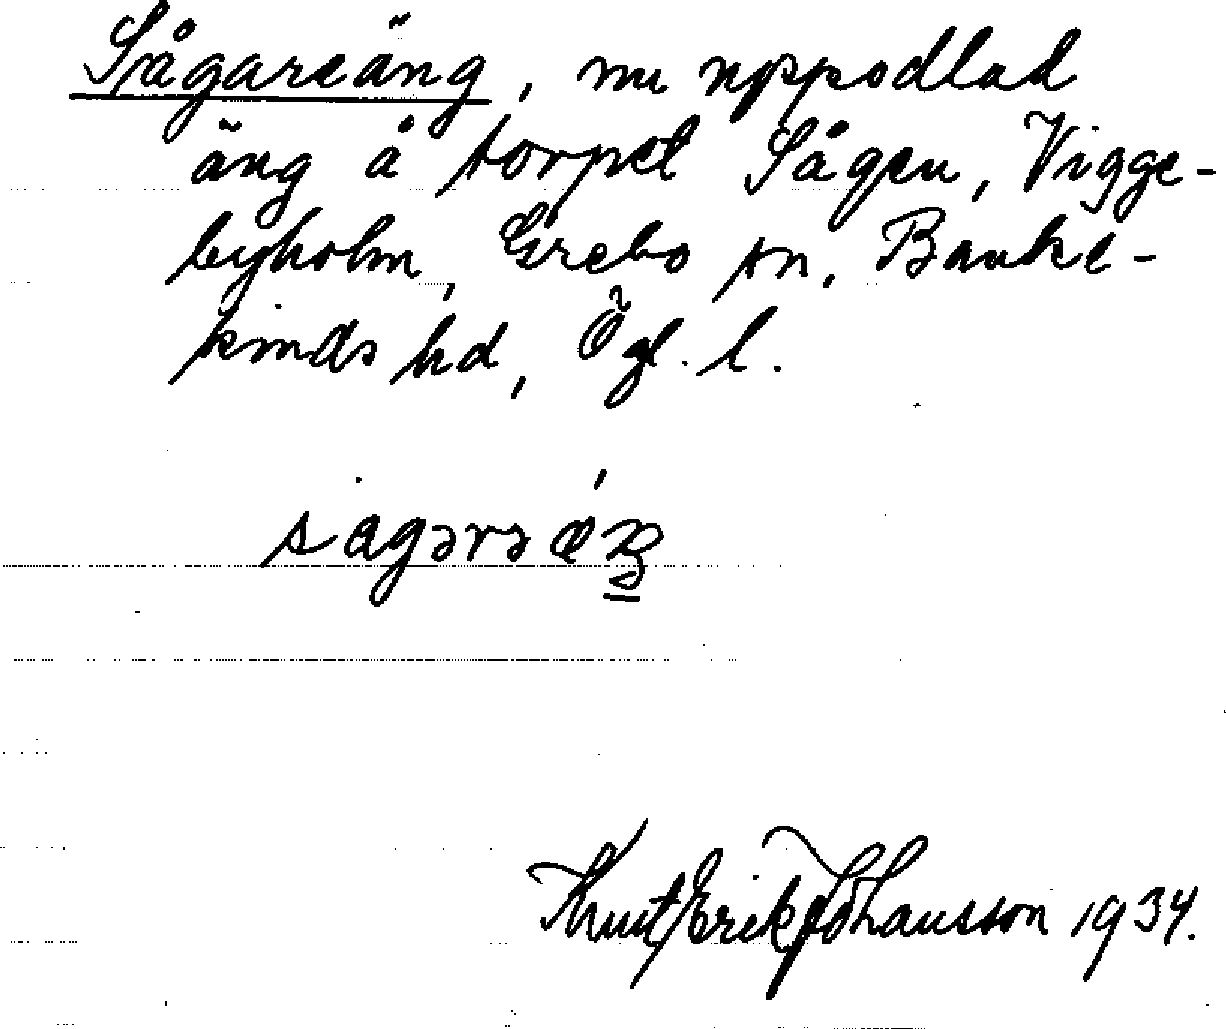 Sågareäng, nu uppodlad
äng å torpet Sågen, Vigge-
byholm, Grebo sn, Banke-
kinds hd, Ögl. l.
sågərəǽŋ
Knut Erik Johansson 1934.